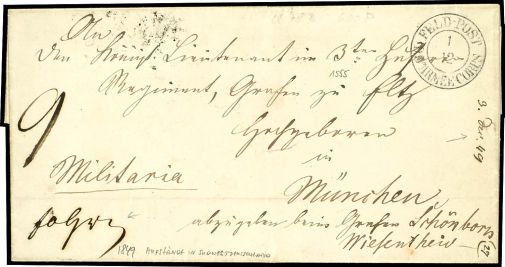 An
FELD-POST
1
12
ARMEE CORPS
Den Königl. Lieutenant im 3ten
Regiment, Grafen zu Eltz
1555
Hochgeboren
9
in
Militaria
München
3. Dec. 49
abzugeben beim Grafen Schönborn
Wiesentheid
27
1849 AUFSTÄNDE IN SÜDWESTDEUTSCHLAND